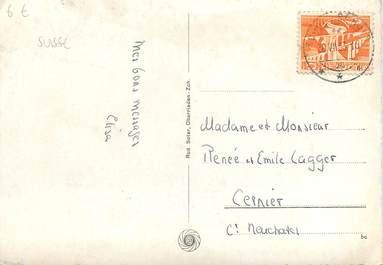 6 €
SUISSE
Mes bons messages
Elisa
Rud. Suter, Oberrieden-Zch.
Madame et Monsieur
Renée et Emile Cagger
Cernier
Ct Neuchatel
bc